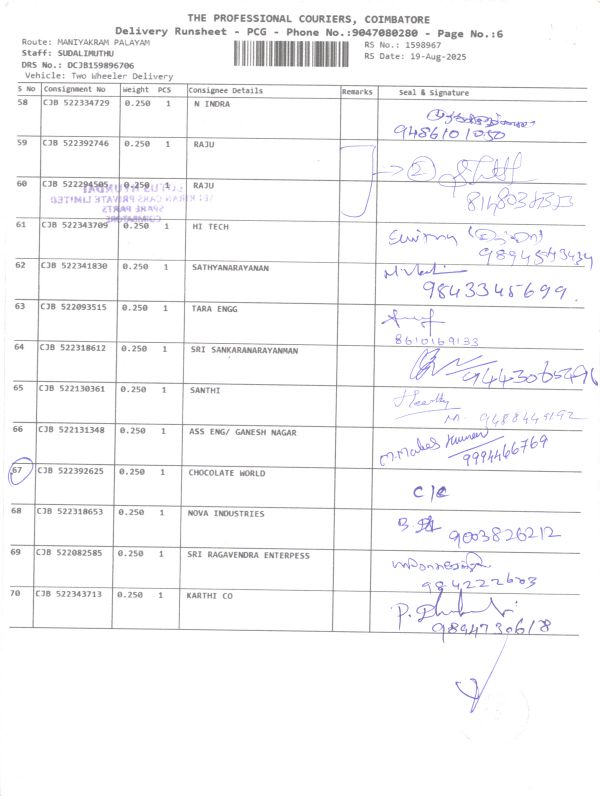 THE PROFESSIONAL COURIERS, COIMBATORE
Delivery Runsheet - PCG - Phone No.:9047080280 - Page No.:6
Route: MANIYAKRAM PALAYAM
RS No.: 1598967
Staff: SUDALIMUTHU
RS Date: 19-Aug-2025
DRS No.: DCJB159896706
Vehicle: Two Wheeler Delivery
S No Consignment No Weight PCS Consignee Details Remarks Seal & Signature
58 CJB 522334729 0.250 1 N INDRA
9486101050
59 CJB 522392746 0.250 1 RAJU
60 CJB 522294505 0.250 1 RAJU
61 CJB 522343709 0.250 1 HI TECH
62 CJB 522341830 0.250 1 SATHYANARAYANAN
9843345699.
63 CJB 522093515 0.250 1 TARA ENGG
8610169133
64 CJB 522318612 0.250 1 SRI SANKARANARAYANMAN
65 CJB 522130361 0.250 1 SANTHI
M. 9488449192
66 CJB 522131348 0.250 1 ASS ENG/ GANESH NAGAR
M. Mahes Kumar
9994466769
67 CJB 522392625 0.250 1 CHOCOLATE WORLD
C/C
68 CJB 522318653 0.250 1 NOVA INDUSTRIES
9003826212
69 CJB 522082585 0.250 1 SRI RAGAVENDRA ENTERPESS
70 CJB 522343713 0.250 1 KARTHI CO